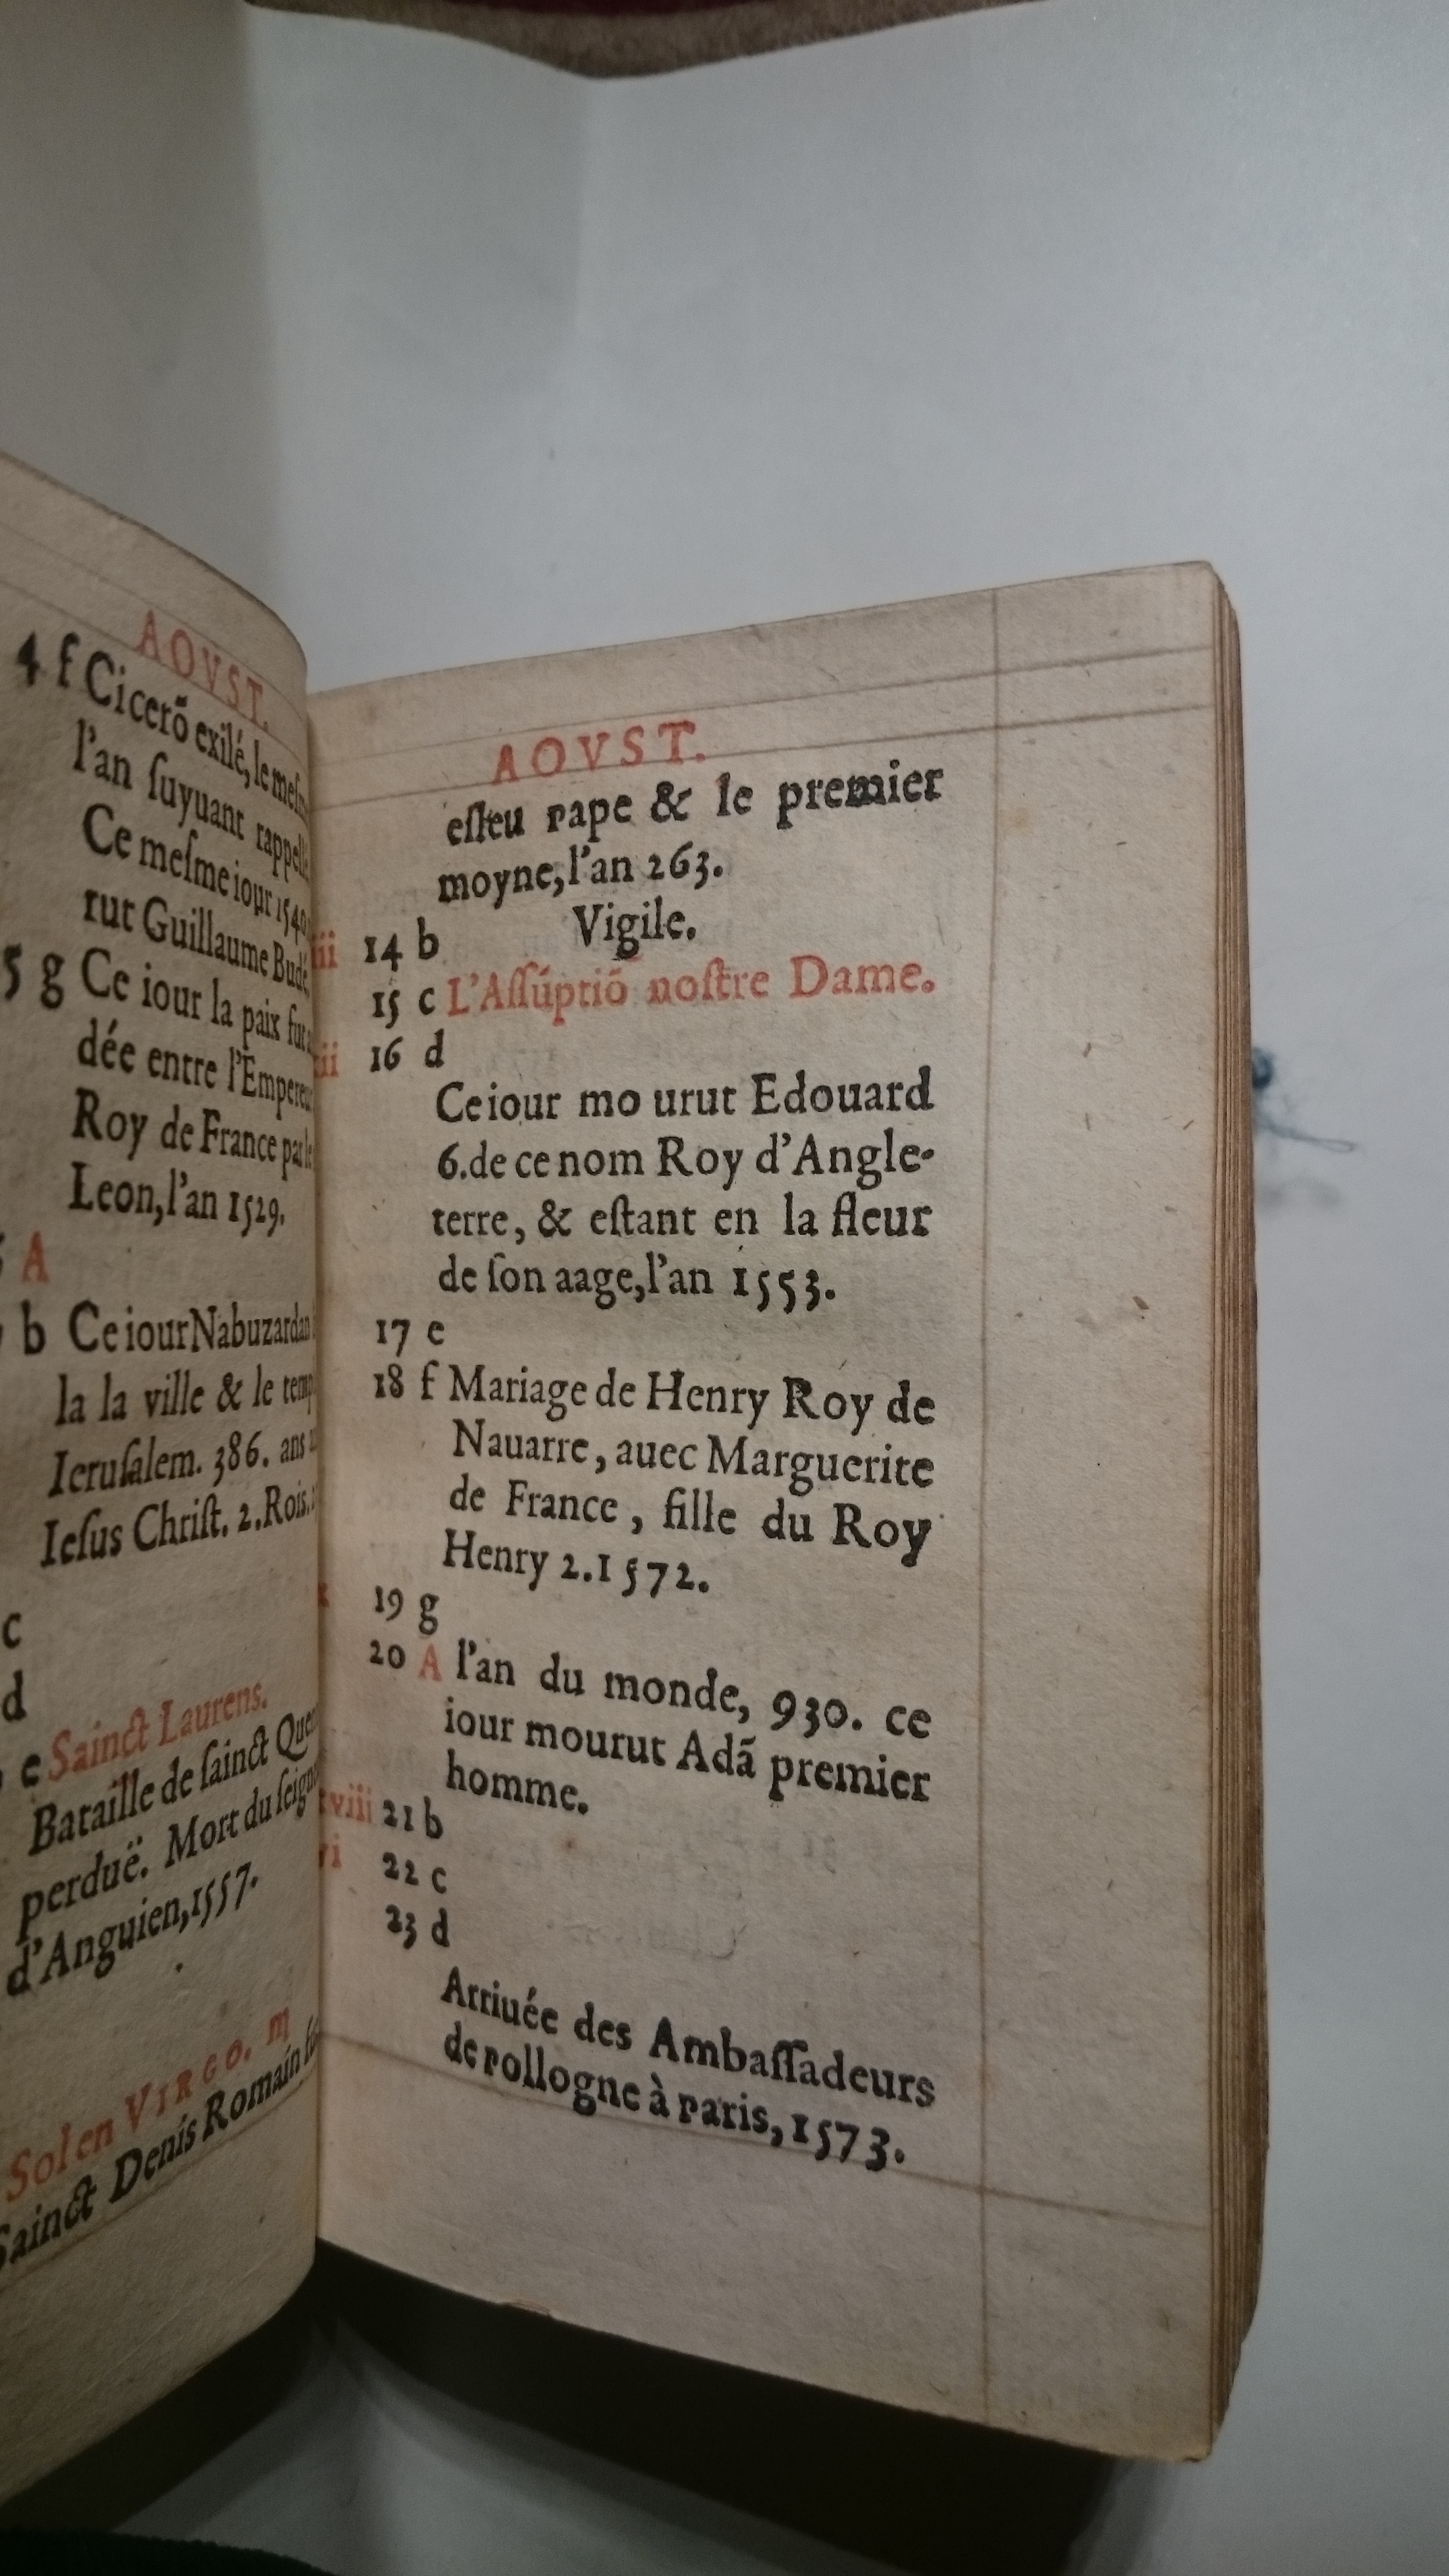 AOVST.
4 f Cicerō exilé, le
l'an ſuyuant
Ce meſme iour 1540
rut Guillaume Budé
5 g Ce iour la paix fut
dée entre l'Empereur
Roy de France par
Leon, l'an 1529.
A
b Ce iour Nabuzardan
la la ville & le
Ieruſalem. 386. ans
Ieſus Chriſt. 2. Rois.
c
d
e Sainct Laurens.
Bataille de ſainct
perduë. Mort du
d'Anguien, 1557.
Sol en VIRGO. ♍
Sainct Denis Romain
AOVST.
eſleu pape & le premier
moyne, l'an 263.
14 b Vigile.
15 c L'Aſſúptiō noſtre Dame.
16 d
Ce iour mo urut Edouard
6. de ce nom Roy d'Angle-
terre, & eſtant en la fleur
de ſon aage, l'an 1553.
17 e
18 f Mariage de Henry Roy de
Nauarre, auec Marguerite
de France, fille du Roy
Henry 2. 1572.
19 g
20 A l'an du monde, 930. ce
iour mourut Adā premier
homme.
21 b
22 c
23 d
Arriuée des Ambaſſadeurs
de pollogne à paris, 1573.